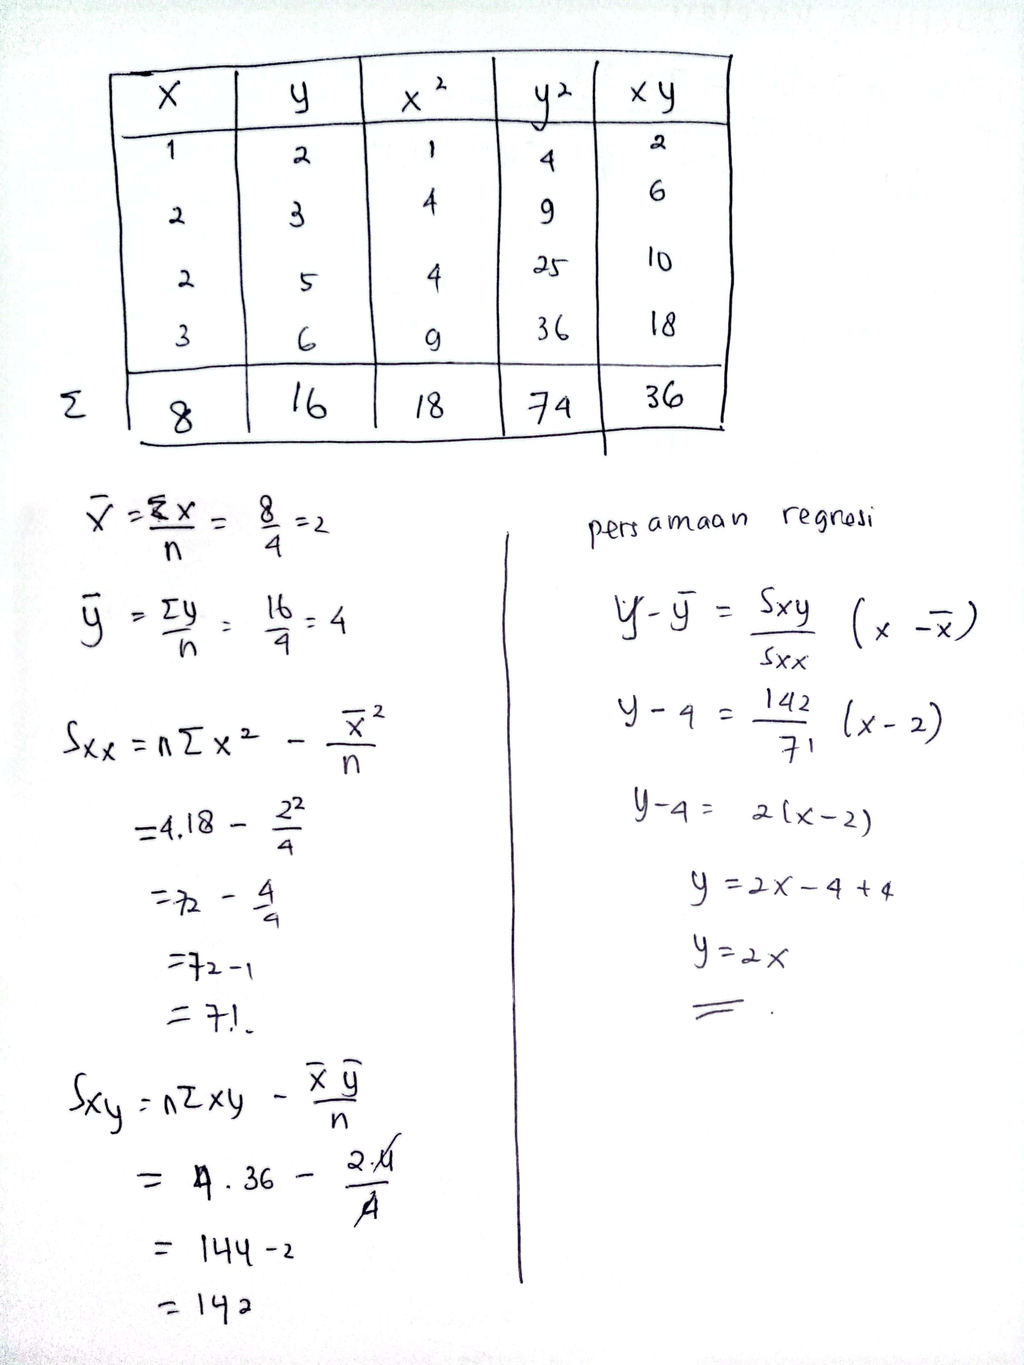 x y x² y² xy
1 2 1 4 2
2 3 4 9 6
2 5 4 25 10
3 6 9 36 18
Σ 8 16 18 74 36
x̄ = Σx/n = 8/4 = 2
ȳ = Σy/n = 16/4 = 4
Sxx = nΣx² - x̄²/n
= 4.18 - 2²/4
= 72 - 4/4
= 72 - 1
= 71.
Sxy = nΣxy - x̄ȳ/n
= 4.36 - 2.4/4
= 144 - 2
= 142
persamaan regresi
y - ȳ = Sxy/Sxx (x - x̄)
y - 4 = 142/71 (x - 2)
y - 4 = 2(x - 2)
y = 2x - 4 + 4
y = 2x